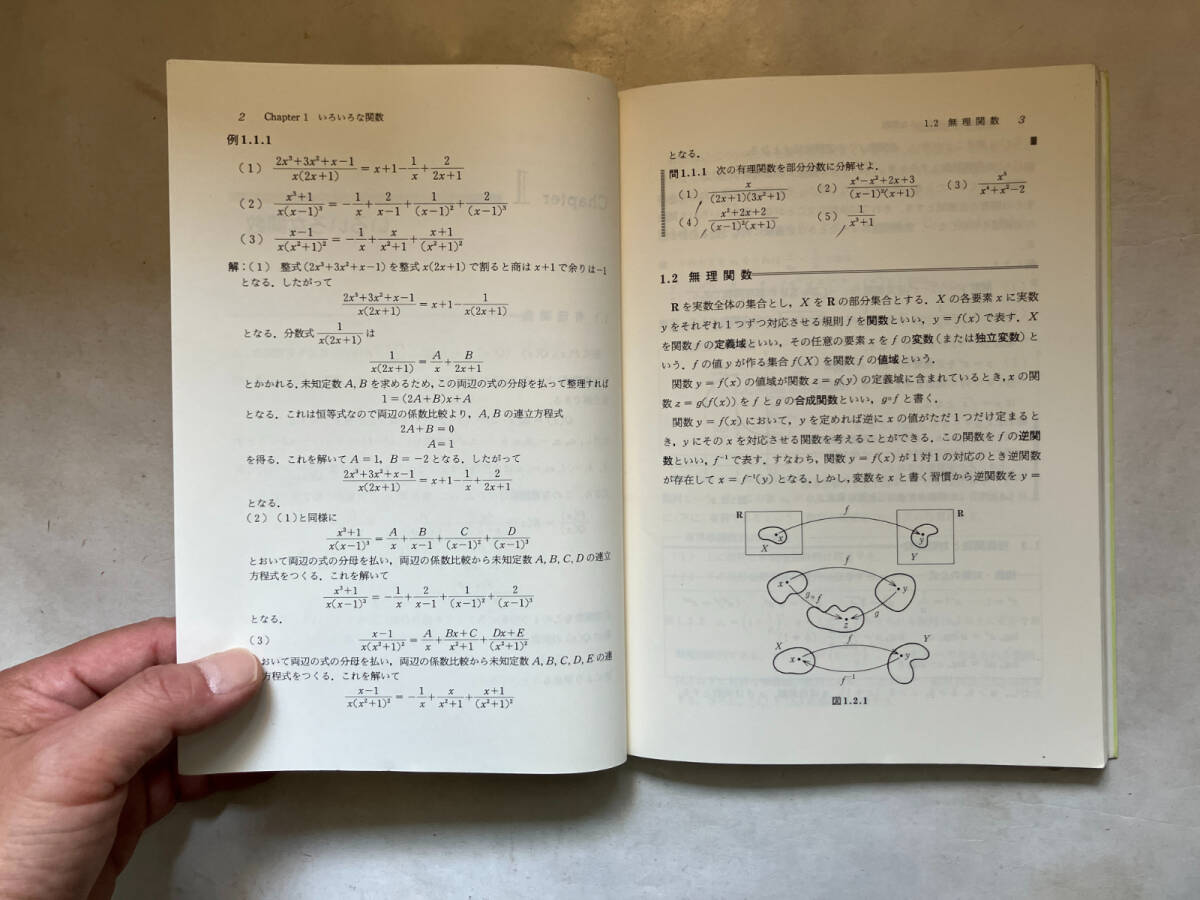 2 Chapter 1 いろいろな関数
例1.1.1
(1) (2x³+3x²+x−1)/(x(2x+1)) = x+1−1/x+2/(2x+1)
(2) (x³+1)/(x(x−1)³) = −1/x+2/(x−1)+1/(x−1)²+2/(x−1)³
(3) (x−1)/(x(x²+1)²) = −1/x+x/(x²+1)+(x+1)/(x²+1)²
解:(1) 整式(2x³+3x²+x−1)を整式x(2x+1)で割ると商はx+1で余りは−1
となる.したがって
(2x³+3x²+x−1)/(x(2x+1)) = x+1−1/(x(2x+1))
となる.分数式 1/(x(2x+1)) は
1/(x(2x+1)) = A/x+B/(2x+1)
とかかれる.未知定数A, Bを求めるため,この両辺の式の分母を払って整理すれば
1=(2A+B)x+A
となる.これは恒等式なので両辺の係数比較より,A, Bの連立方程式
2A+B=0
A=1
を得る.これを解いてA=1,B=−2となる.したがって
(2x³+3x²+x−1)/(x(2x+1)) = x+1−1/x+2/(2x+1)
となる.
(2) (1)と同様に
(x³+1)/(x(x−1)³) = A/x+B/(x−1)+C/(x−1)²+D/(x−1)³
とおいて両辺の式の分母を払い,両辺の係数比較から未知定数A, B, C, Dの連立
方程式をつくる.これを解いて
(x³+1)/(x(x−1)³) = −1/x+2/(x−1)+1/(x−1)²+2/(x−1)³
となる.
(3) (x−1)/(x(x²+1)²) = A/x+(Bx+C)/(x²+1)+(Dx+E)/(x²+1)²
おいて両辺の式の分母を払い,両辺の係数比較から未知定数A, B, C, D, Eの連
方程式をつくる.これを解いて
(x−1)/(x(x²+1)²) = −1/x+x/(x²+1)+(x+1)/(x²+1)²
1.2 無理関数 3
となる.
問1.1.1 次の有理関数を部分分数に分解せよ.
(1) x/((2x+1)(3x²+1)) (2) (x⁴−x²+2x+3)/((x−1)²(x+1)) (3) /(x⁴+x²−2)
(4) (x³+2x+2)/((x−1)²(x+1)) (5) 1/(x³+1)
1.2 無理関数
Rを実数全体の集合とし,XをRの部分集合とする.Xの各要素xに実数
yをそれぞれ1つずつ対応させる規則fを関数といい,y=f(x)で表す.X
を関数fの定義域といい,その任意の要素xをfの変数(または独立変数)と
いう.fの値yが作る集合f(X)を関数fの値域という.
関数y=f(x)の値域が関数z=g(y)の定義域に含まれているとき,xの関
数z=g(f(x))をfとgの合成関数といい,g∘fと書く.
関数y=f(x)において,yを定めれば逆にxの値がただ1つだけ定まると
き,yにそのxを対応させる関数を考えることができる.この関数をfの逆関
数といい,f⁻¹で表す.すなわち,関数y=f(x)が1対1の対応のとき逆関数
が存在してx=f⁻¹(y)となる.しかし,変数をxと書く習慣から逆関数をy=
R f R
x y
X Y
f
x y
g∘f g
z
X f Y
x y
f⁻¹
図1.2.1